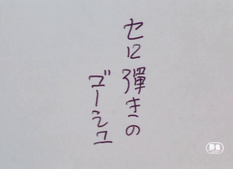 セロ弾きの
ゴーシュ